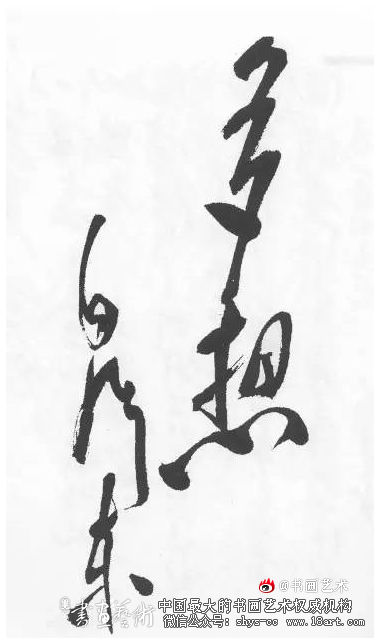 多想
来
@书画艺术
書画藝術
中国最大的书画艺术权威机构
微信公众号: shys-cc www.18art.com